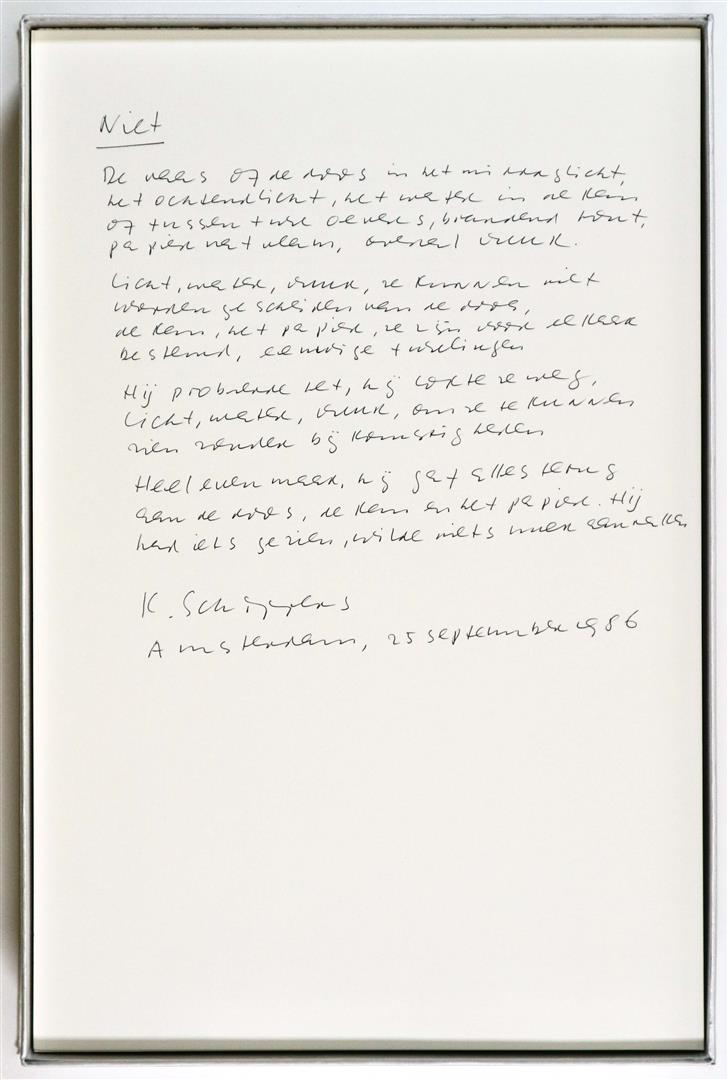 Niet
De vaas of de doos in het middaglicht,
het ochtendlicht, het water in de kom
of tussen twee oevers, brandend hout,
papier vat vlam, overal vuur.
Licht, water, vuur, ze kunnen niet
worden gescheiden van de doos,
de kom, het papier, ze zijn voor elkaar
bestemd, eeneiige tweelingen
Hij probeerde het, hij lokte ze weg,
licht, water, vuur, om ze te kunnen
zien zonder bijkomstigheden
Heel even maar, hij gaf alles terug
aan de doos, de kom en het papier. Hij
had iets gezien, wilde niets meer aanraken
K. Schippers
Amsterdam, 25 september 1986